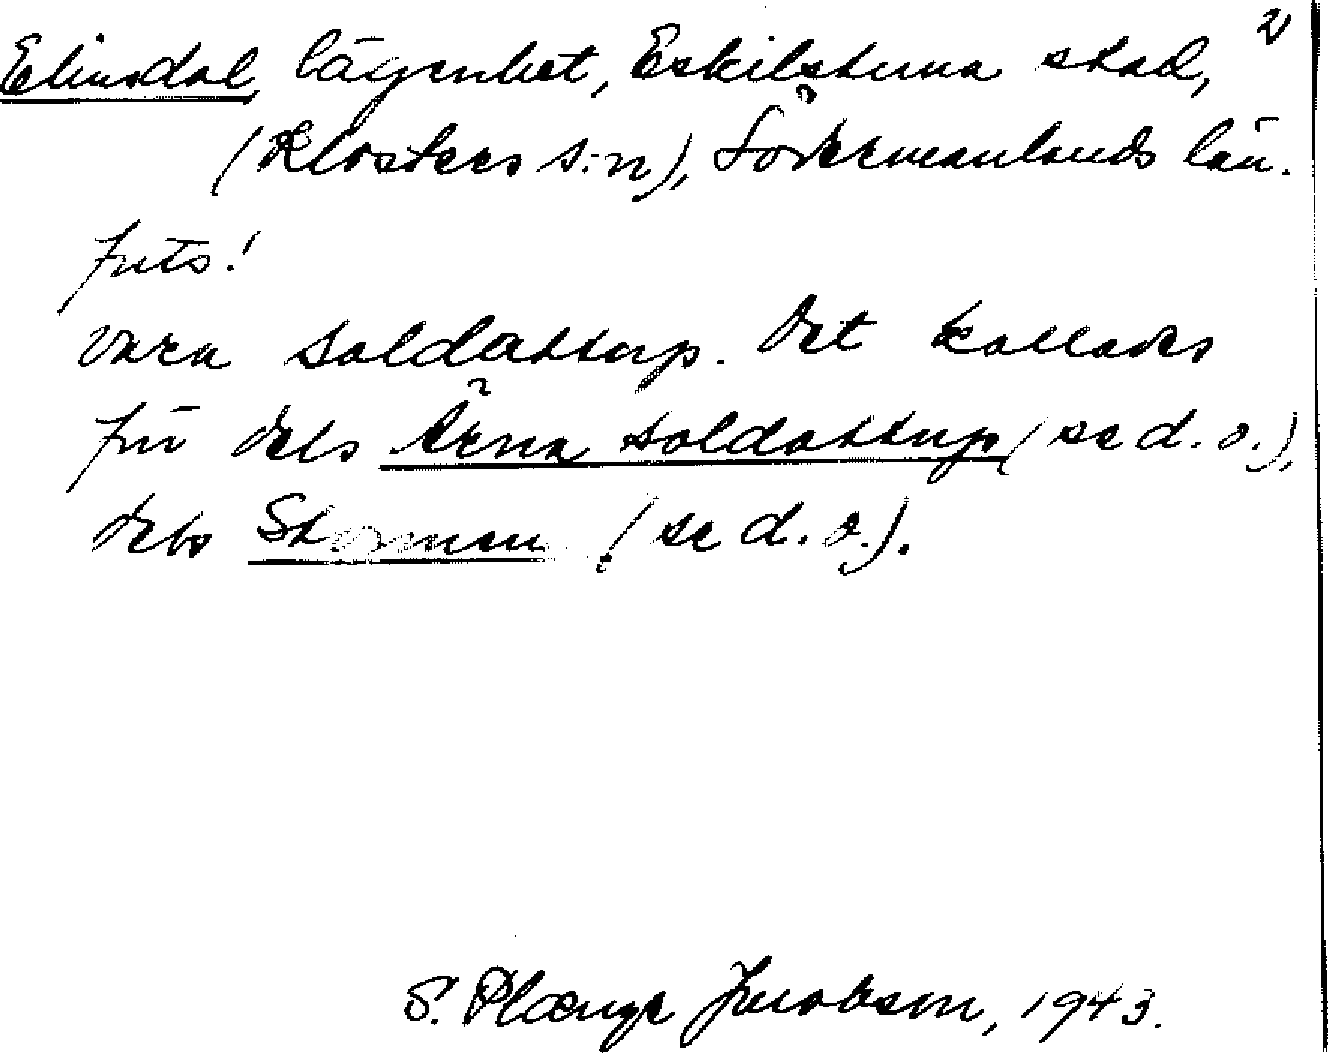 2)
Elinsdal, lägenhet, Eskilstuna stad,
(Klosters s:n), Södermanlands län.
Forts!
vara soldattorp. Det kallades
för dels Ärna soldattorp (se d. o.),
dels Storman (se d. o.).
S. Plænge Jacobson, 1943.